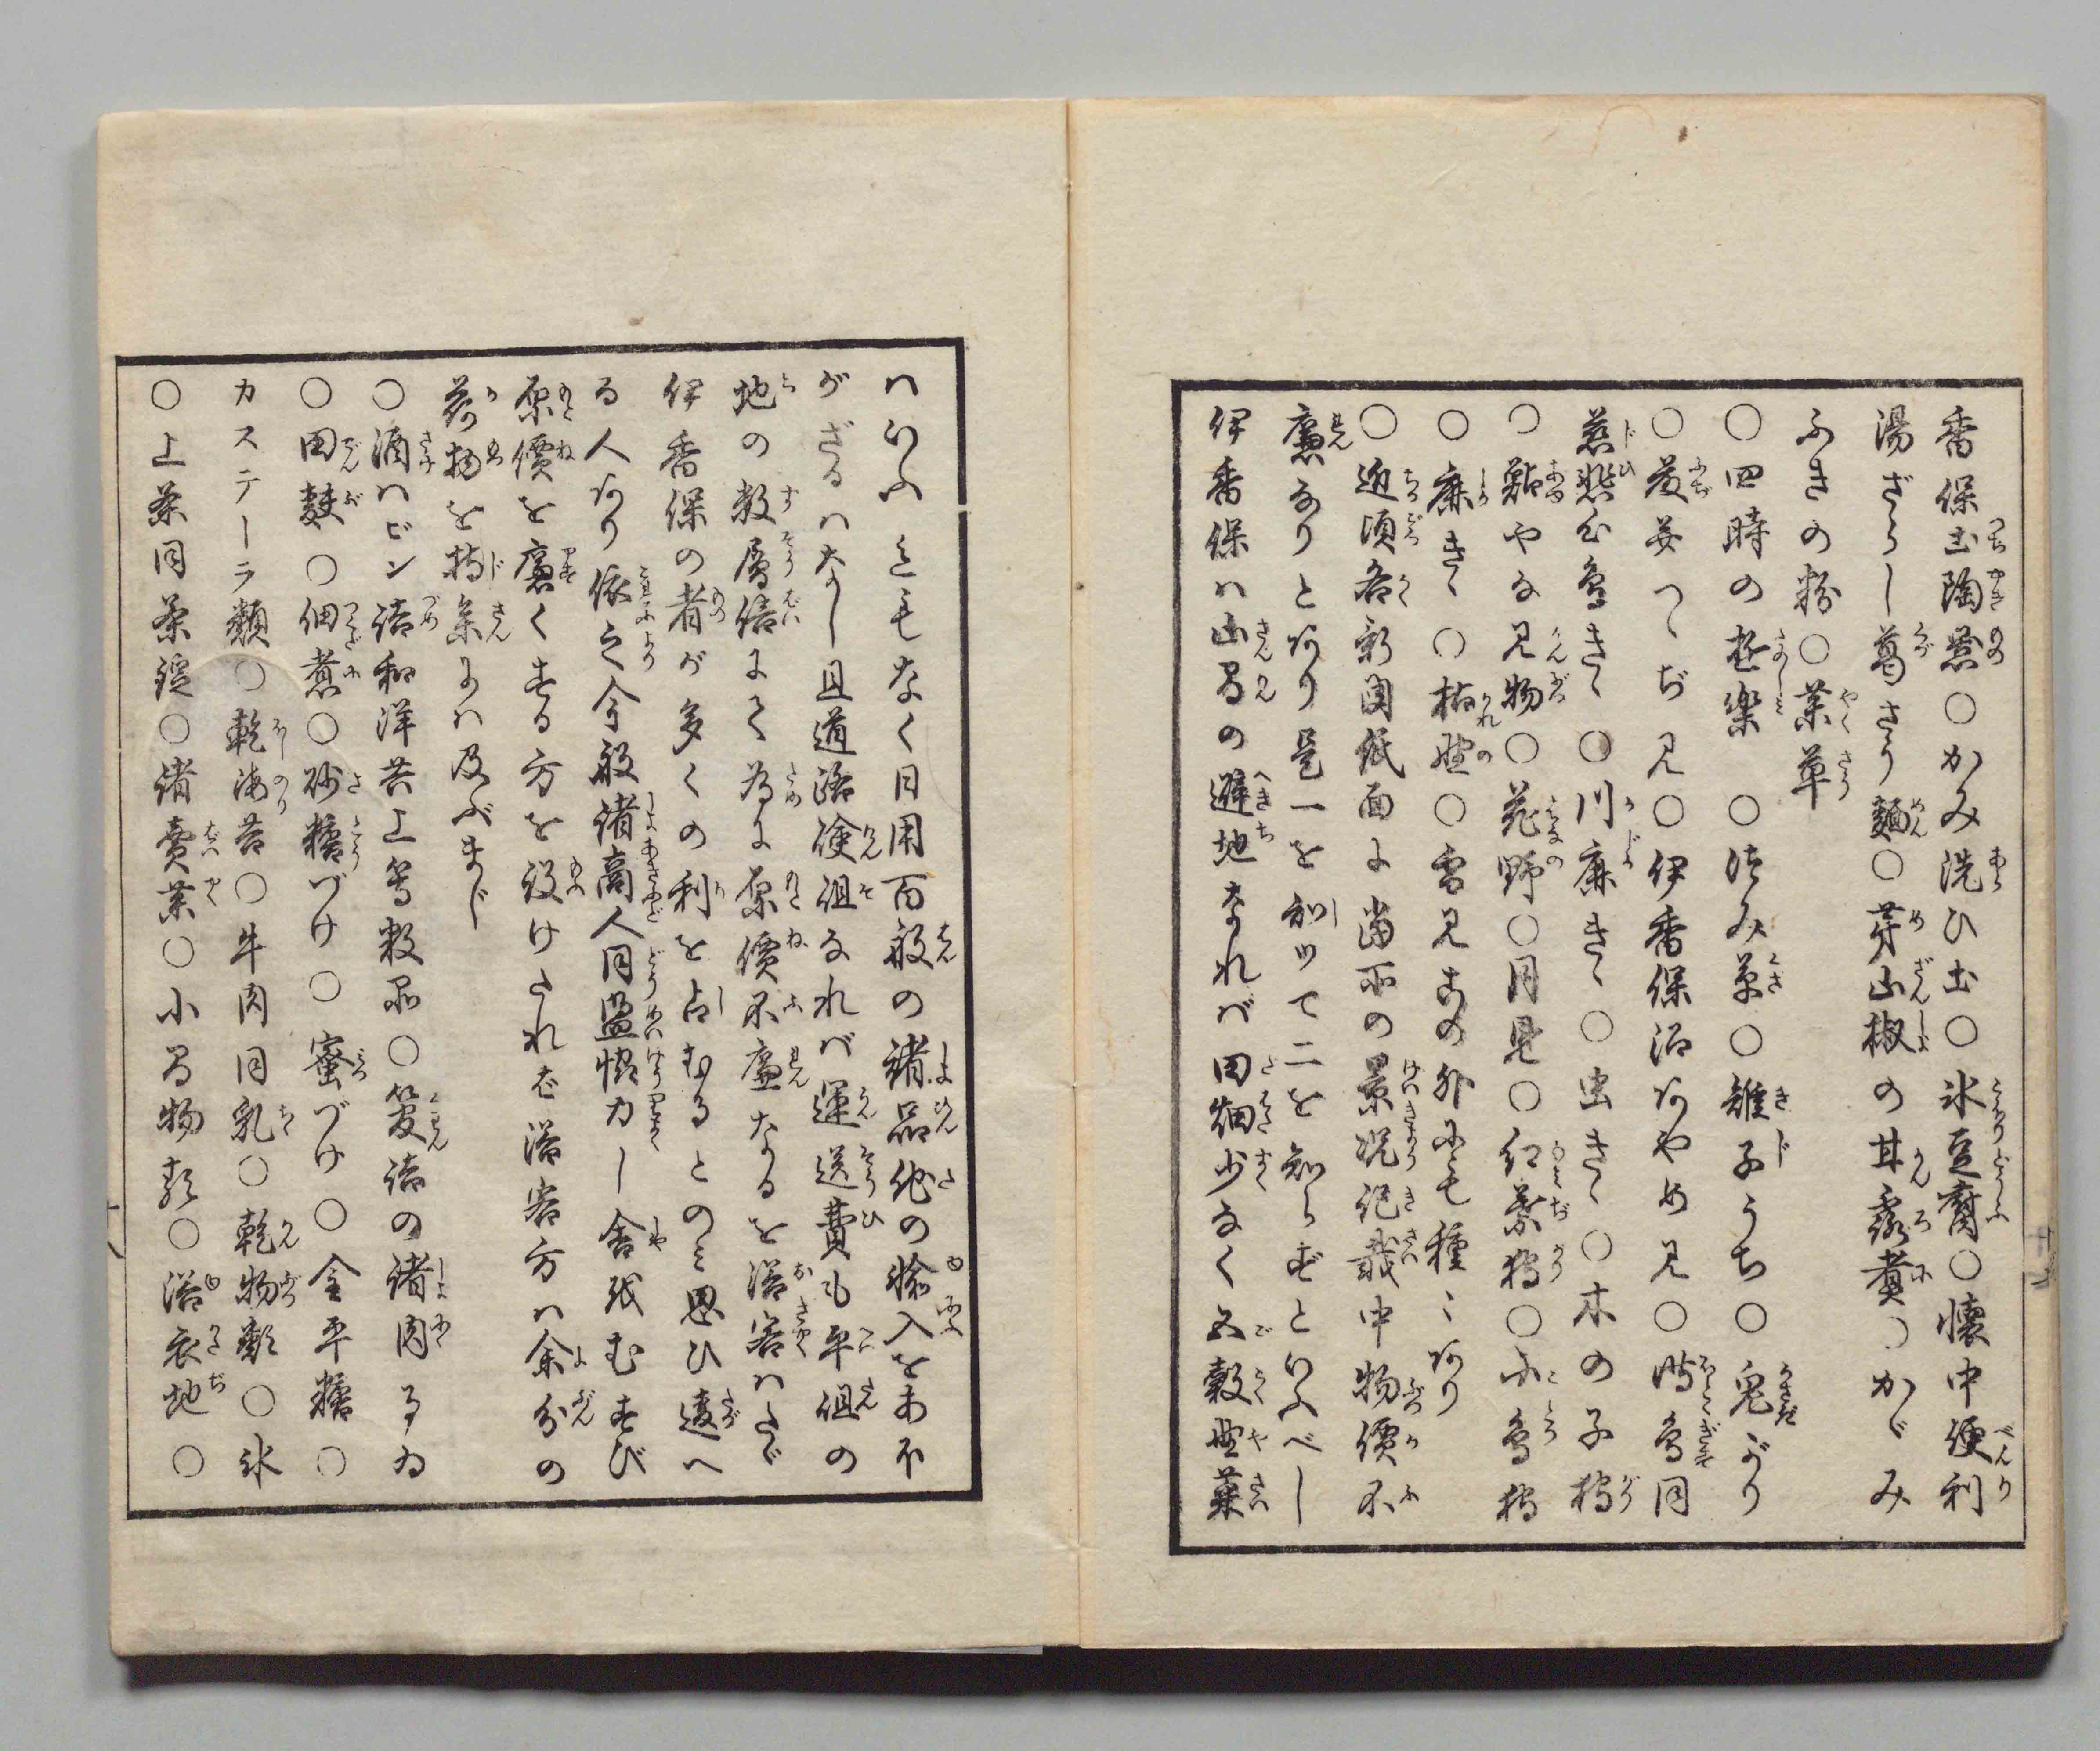 香保土陶器○かみ洗ひ土○氷豆腐○懐中便利
湯ざらし葛さう麺○芽山椒の甘露煮○かゞみ
ふきの粉○薬草
○四時の遊楽 ○つみ草○雉子うち○兎がり
○藤 つゝぢ見○伊香保沼あやめ見○時鳥同
慈悲心鳥きく○川鹿きく○虫きく○木の子狩
○鮎やな見物○花野○月見○紅葉狩○小鳥狩
○鹿きく○枯野○雪見此外にも種々あり
○近頃各新聞紙面に当所の景況記載中物價不
廉なりとあり是一を知ツて二を知らずといふべし
伊香保ハ山間の避地なれバ田畑少なく五穀野菜
ハいふまでもなく日用百般の諸品他の輸入をあふ
がざるハなし且道路険阻なれバ運送費も平坦の
地の数層倍にて為に原價不廉なるを浴客ハたゞ
伊香保の者が多くの利を占むるとのミ思ひ違へ
る人あり依之今般諸商人同盟協力し舎 むすび
原價を廉くする方を設けたれば浴客方ハ余分の
荷物を持参にハ及ぶまじ
○酒ハビン詰和洋共上等数品○鑵詰の諸肉るゐ
○田麩○佃煮○砂糖づけ○蜜づけ○金平糖○
カステーラ類○乾海苔○牛肉同乳○乾物類○氷
○上茶同茶 ○諸賣薬○小間物類○浴衣地○